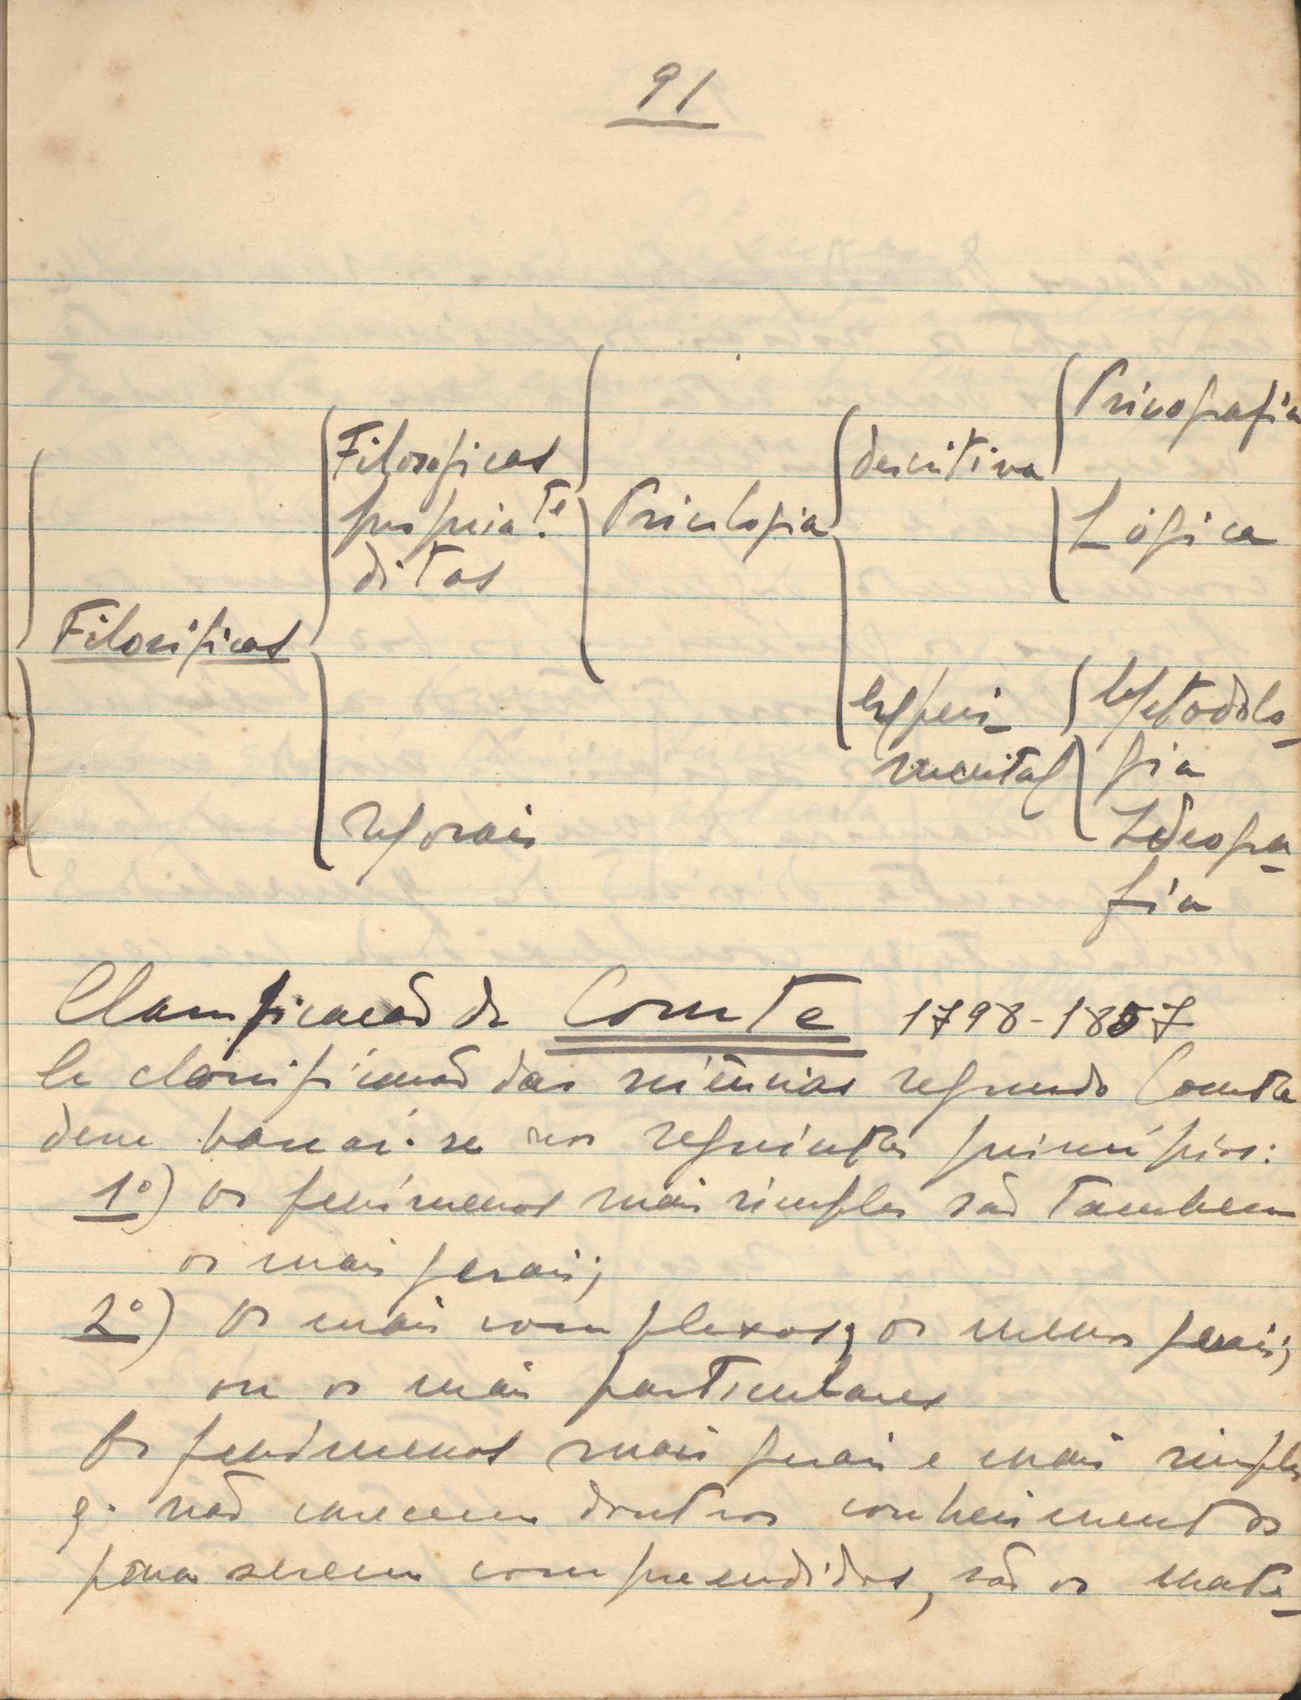 91
Filosificas
Filosoficas
propria.te
ditas
Morais
Psicologia
descritiva
Psicografia
Lógica
Experi-
mental
Metodolo-
gia
Ideogra-
fia
Classificacão de Comte 1798-1857
A classificacão das sciencias segundo Comte
deve basear-se nos seguintes principios:
1º) Os fenómenos mais simples são tambem
os mais gerais;
2º) Os mais complexos, os menos gerais,
ou os mais particulares
Os fenómenos mais gerais e mais simples
q. não carecem doutros conhecimentos
para serem compreendidos, são os mate-